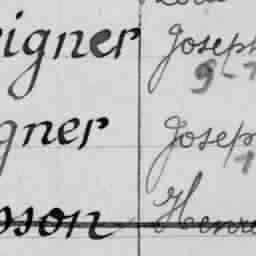 eigner Joseph
9-1
gner Joseph
1
sson Henr